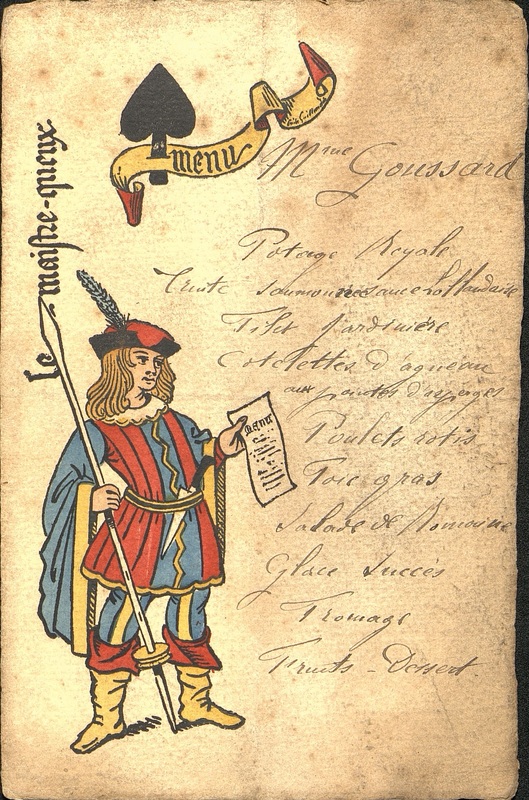 menu
Mme Goussard
le maistre-queux.
menu
Potage Royale
Truite saumonée sauce hollandaise
Filet Jardinière
Cotelettes d'agneau
aux pointes d'asperges
Poulets rotis
Foie gras
Salade de Romaine
Glace Succès
Fromage
Fruits - Dessert.